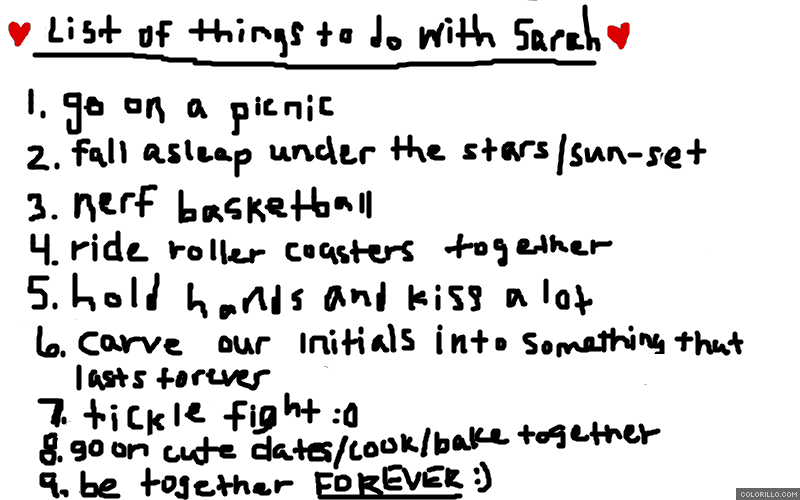 ♥ List of things to do with Sarah ♥
1. go on a picnic
2. fall asleap under the stars/sun-set
3. nerf basketball
4. ride roller coasters together
5. hold hands and kiss a lot
6. carve our initials into something that
lasts forever
7. tickle fight :0
8. go on cute dates/cook/bake together
9. be together FOREVER :)
COLORILLO.COM